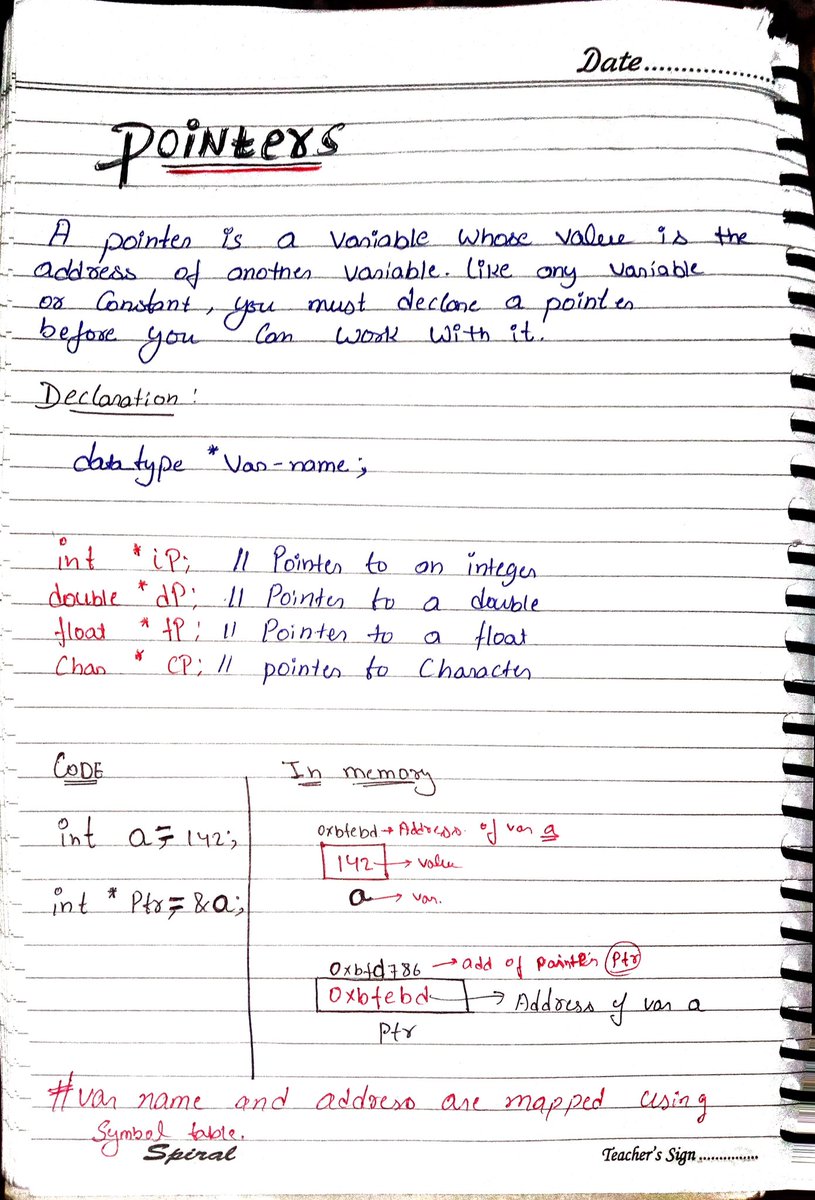 Date..................
Pointers
A pointer is a variable whose value is the
address of another variable. Like any variable
or Constant, you must declare a pointer
before you can work with it.
Declaration :
data type *Var-name;
int *iP; // Pointer to an integer
double *dP; // Pointer to a double
float *fP; // Pointer to a float
Char * CP; // pointer to Character
CODE
int a = 142;
int * Ptr = &a;
In memory
0xbfebd → Address of var a
142 → value
a → var.
0xbfd786 → add of pointer Ptr
0xbfebd → Address of var a
Ptr
#var name and address are mapped using
Symbol table.
Spiral
Teacher's Sign...............